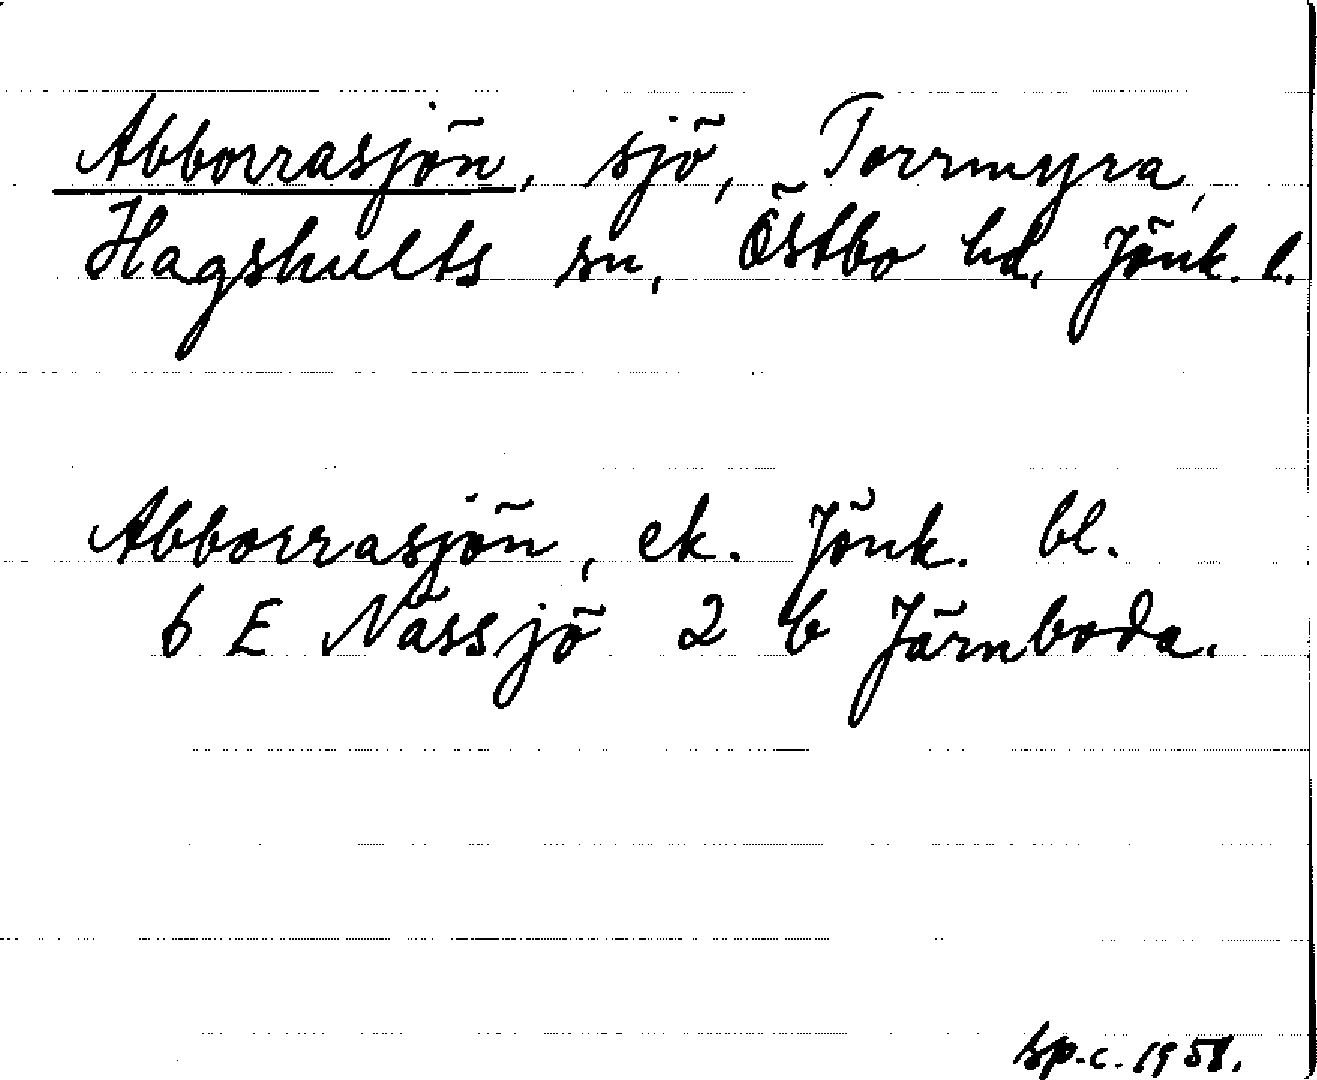 Abborrasjön, sjö, Torrmyra,
Hagshults sn, Östbo hd, Jönk. l.
Abborrasjön, ek. Jönk. bl.
6 E Nässjö 2 b Järnboda.
sp.c. 1958.